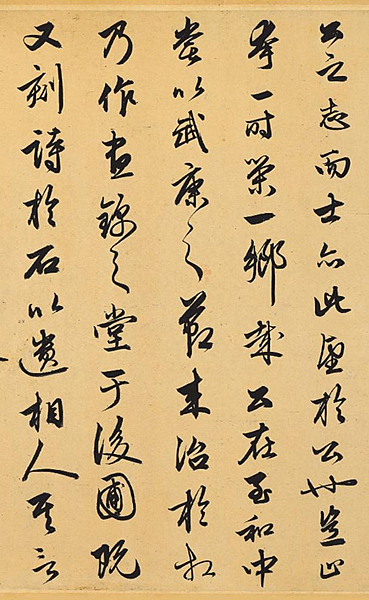 公之志而士亦以此望於公也豈止
夸一時榮一鄉哉公在至和中
嘗以武康之節來治於相
乃作晝錦之堂于後圃既
又刻詩於石以遺相人其言